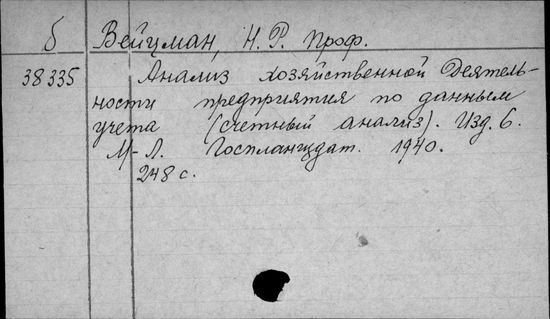 б Вейцман, Н. Р. проф.
38335 Анализ хозяйственной деятель-
ности предприятия по данным
учета (счетный анализ). Изд. 6.
М-Л. Госпланиздат. 1940.
248 с.